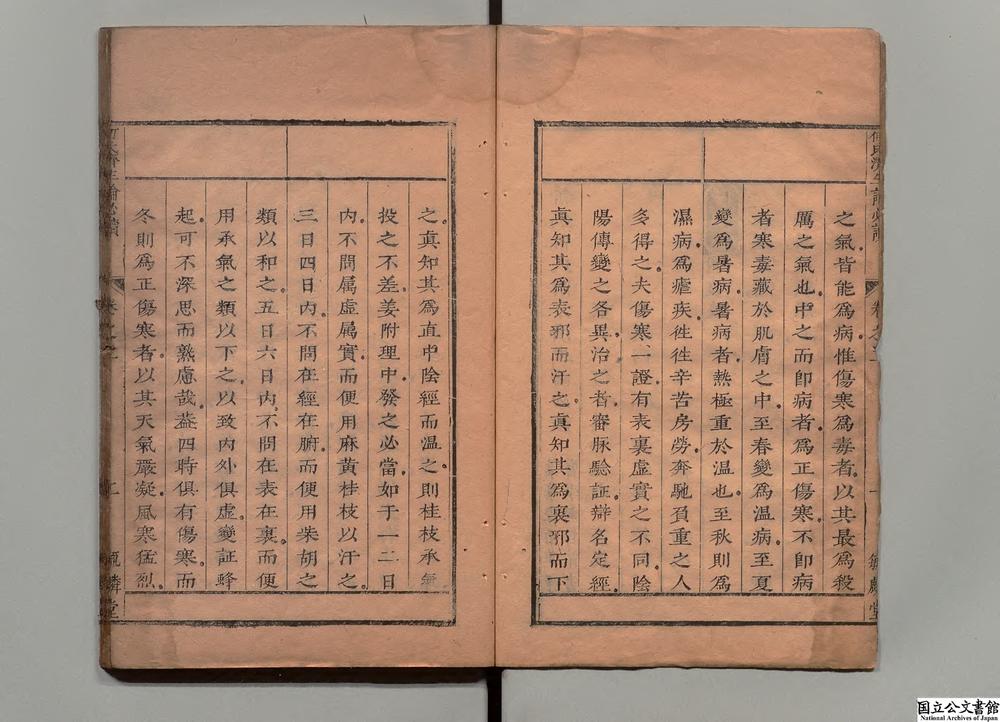 之氣皆能爲病。惟傷寒爲毒者。以其最爲殺
厲之氣也。中之而卽病者。爲正傷寒。不卽病
者寒毒藏於肌膚之中。至春變爲温病。至夏
變爲暑病。暑病者。熱極重於温也。至秋則爲
濕病。爲瘧疾。徃徃辛苦房勞。奔馳負重之人
多得之。夫傷寒一證。有表裏虛實之不同。陰
陽傳變之各異。治之者。審脉驗証。辯名定經。
眞知其爲表邪而汗之。眞知其爲裏邪而下
之。眞知其爲直中陰經而温之。則桂枝承氣
投之不差。姜附理中發之必當。如于一二日
内。不問屬虛屬實。而便用麻黃桂枝以汗之。
三日四日内。不問在經在腑。而便用柴胡之
類以和之。五日六日内。不問在表在裏。而便
用承氣之類以下之。以致内外俱虛。變証蜂
起。可不深思而熟慮哉。葢四時俱有傷寒。而
冬則爲正傷寒者。以其天氣嚴凝。風寒猛烈。
卷之
毓麟堂
国立公文書館
National Archives of Japan